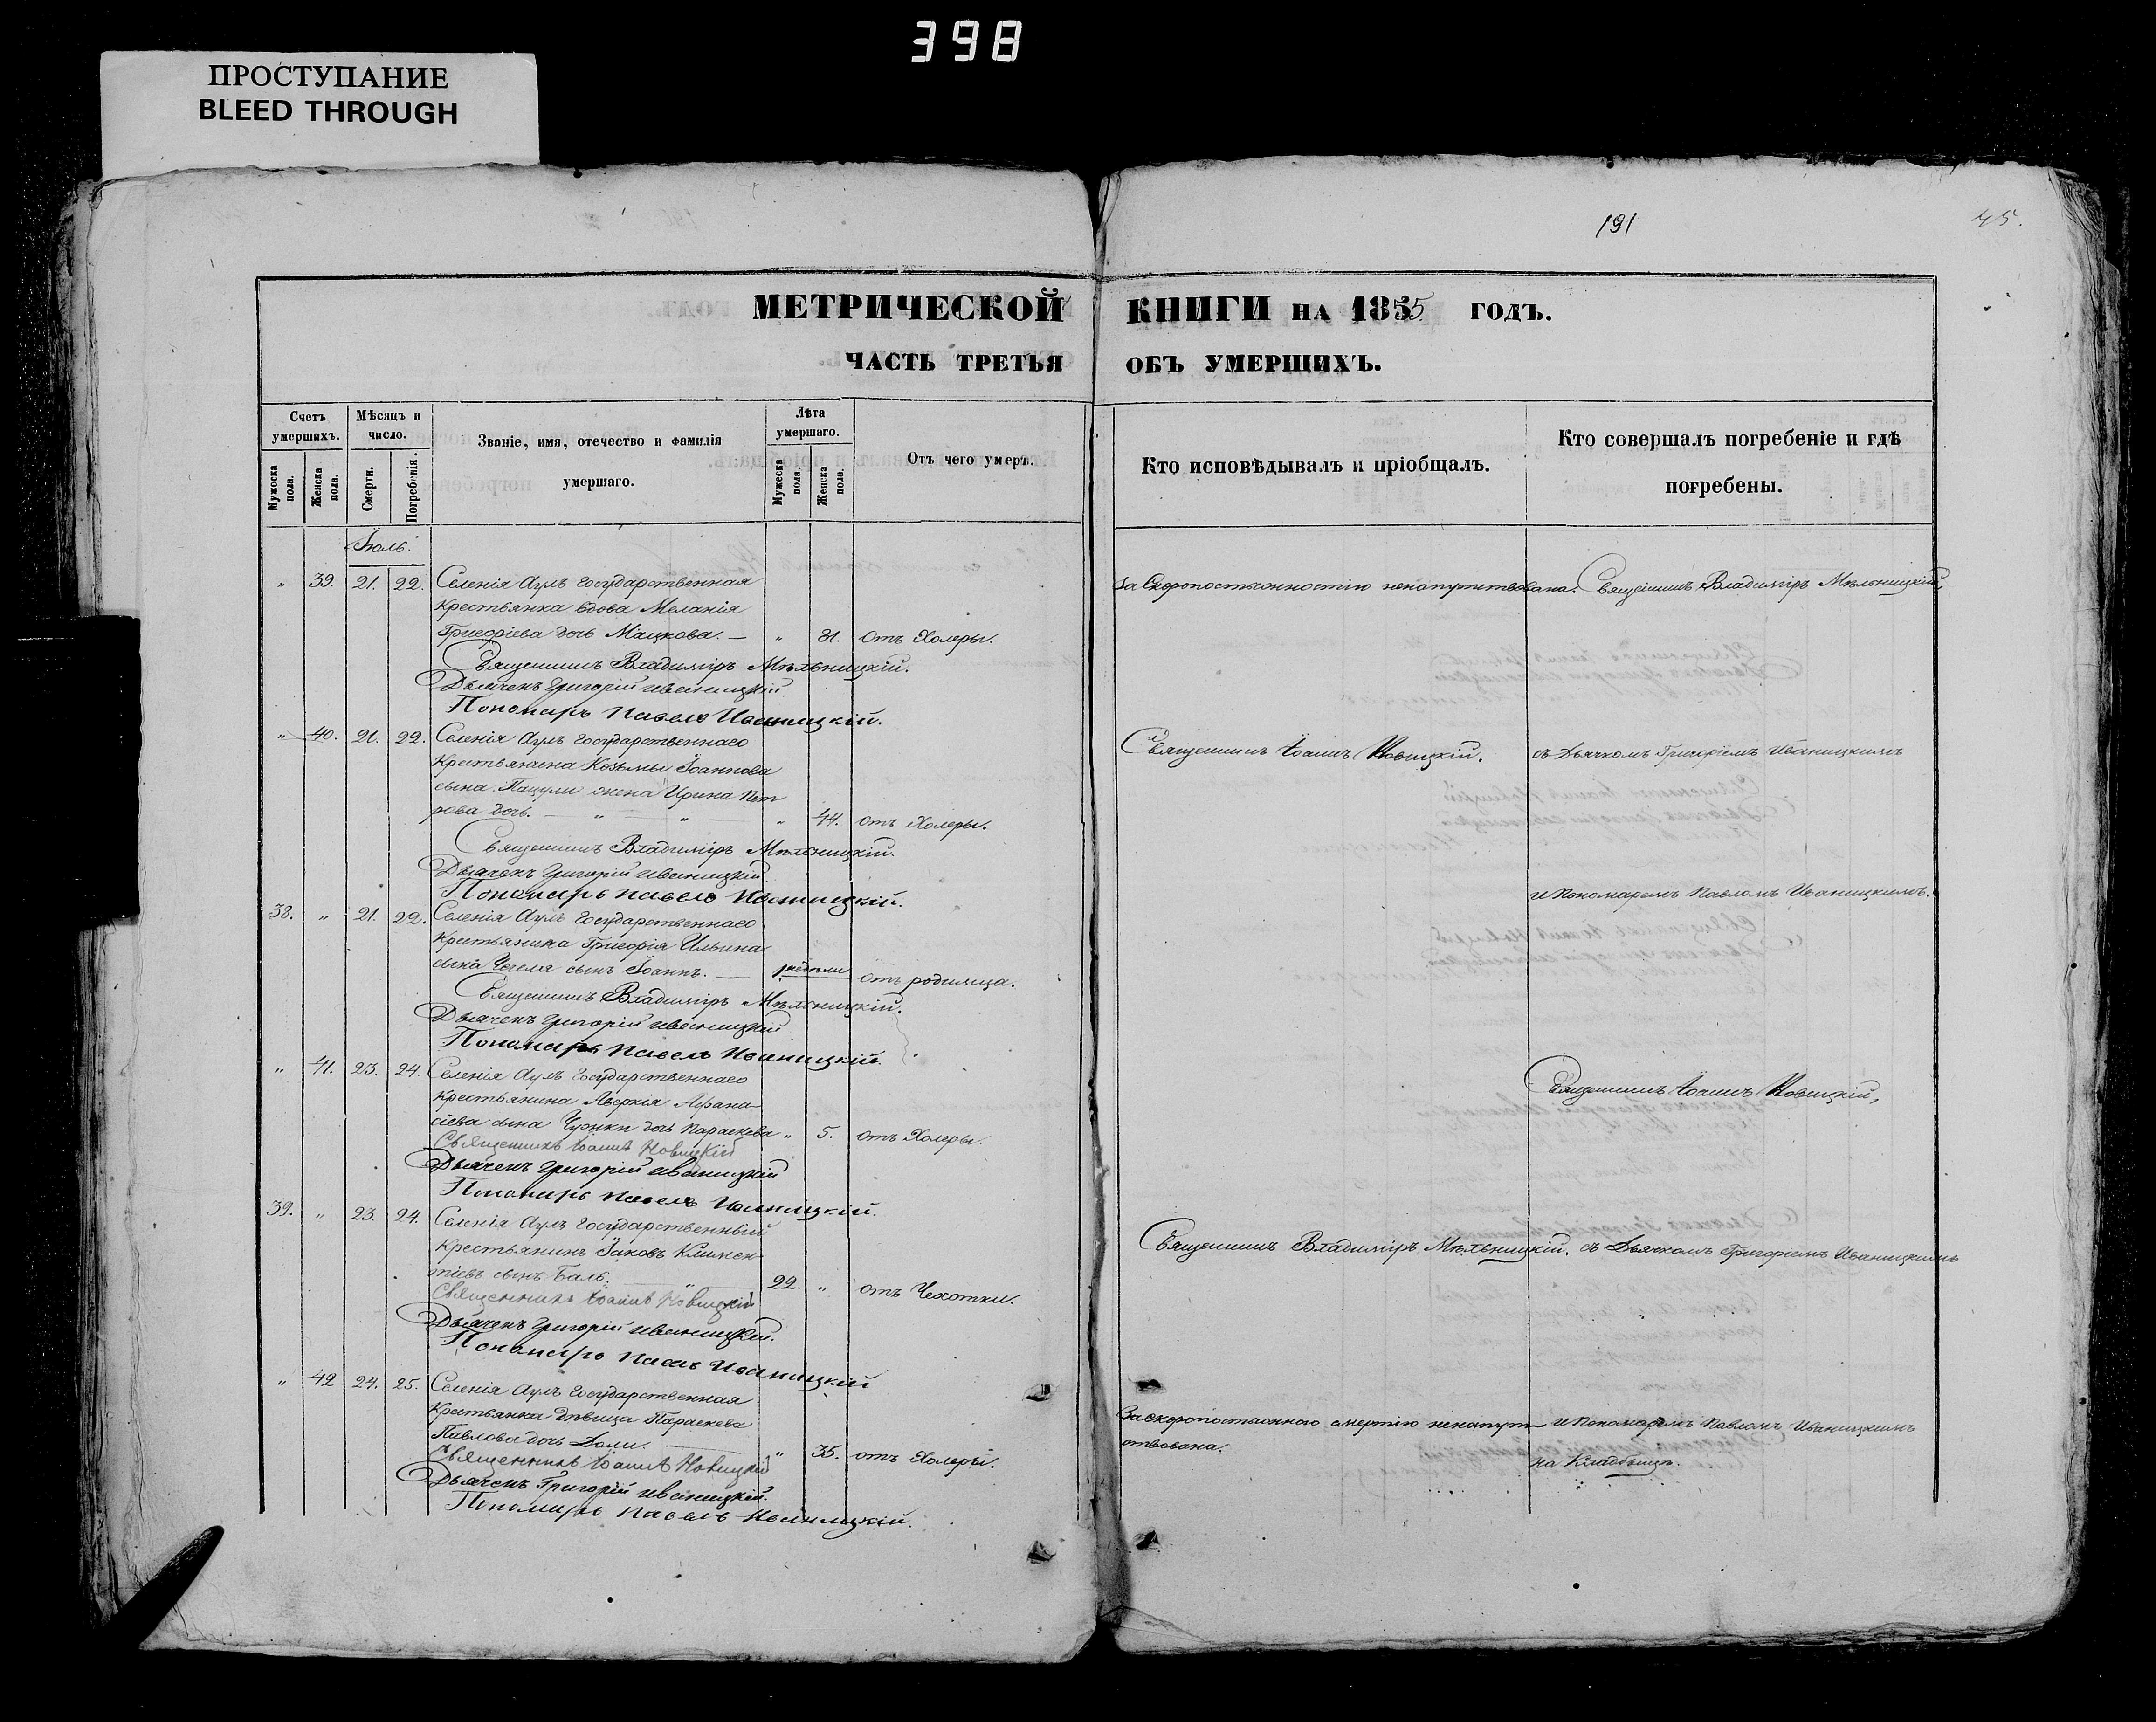 398
ПРОСТУПАНИЕ
BLEED THROUGH
191
45.
МЕТРИЧЕСКОЙ КНИГИ НА 1855 ГОДЪ.
ЧАСТЬ ТРЕТЬЯ ОБЪ УМЕРШИХЪ.
Счетъ умершихъ.
Мужеска пола.
Женска пола.
Мѣсяцъ и число.
Смерти.
Погребенія.
Званіе, имя, отечество и фамилія умершаго.
Лѣта умершаго.
Мужеска пола.
Женска пола.
Отъ чего умеръ.
Кто исповѣдывалъ и пріобщалъ.
Кто совершалъ погребеніе и гдѣ погребены.
Іюль.
" 39. 21. 22. Селенія Аулъ Государственная
Крестьянка вдова Меланія
Григоріева дочь Мацкова. — " 81. отъ Холеры.
Священникъ Владиміръ Мѣльницкій.
Дьячекъ Григорій Иваницкій
Пономарь Павелъ Иваницкій.
За скоропостижностію ненапутствована.
Священникъ Владиміръ Мѣльницкій,
" 40. 21. 22. Селенія Аулъ Государственнаго
Крестьянина Козьмы Іоаннова
сына Пацули жена Ирина Пет
рова дочь. — " — " — " 44. отъ Холеры.
Священникъ Владиміръ Мѣльницкій.
Дьячекъ Григорій Иваницкій
Пономарь Павелъ Иваницкій.
Священникъ Іоаннъ Новицкій.
съ Дьячкомъ Григоріемъ Иваницкимъ
и Пономаремъ Павломъ Иваницкимъ.
38. " 21. 22. Селенія Аулъ Государственнаго
Крестьянина Григорія Ильина
сына сынъ Іоаннъ. — отъ родимца.
Священникъ Владиміръ Мѣльницкій.
Дьячекъ Григорій Иваницкій
Пономарь Павелъ Иваницкій.
" 41. 23. 24. Селенія Аулъ Государственнаго
Крестьянина Аверкія Афана-
сіева сына дочь Параскева " 5. отъ Холеры.
Священникъ Іоаннъ Новицкій
Дьячекъ Григорій Иваницкій
Пономарь Павелъ Иваницкій.
Священникъ Іоаннъ Новицкій,
39. " 23. 24. Селенія Аулъ Государственный
Крестьянинъ Іаковъ Климен-
тіевъ сынъ Баль. — " — 22. " отъ Чахотки.
Священникъ Іоаннъ Новицкій
Дьячекъ Григорій Иваницкій.
Пономарь Павелъ Иваницкій
Священникъ Владиміръ Мѣльницкій.
съ Дьячкомъ Григоріемъ Иваницкимъ
" 42 24. 25. Селенія Аулъ Государственная
Крестьянка дѣвица Параскева
Павлова дочь . — " 35. отъ Холеры.
Священникъ Іоаннъ Новицкій
Дьячекъ Григорій Иваницкій.
Пономарь Павелъ Иваницкій.
За скоропостижною смертію ненапут-
ствована.
и Пономаремъ Павломъ Иваницкимъ
на Кладбищѣ.